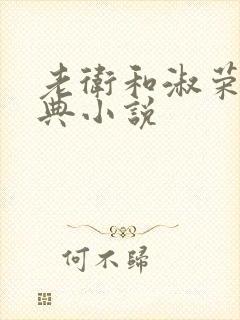 老衛和淑榮
典小說
何不歸